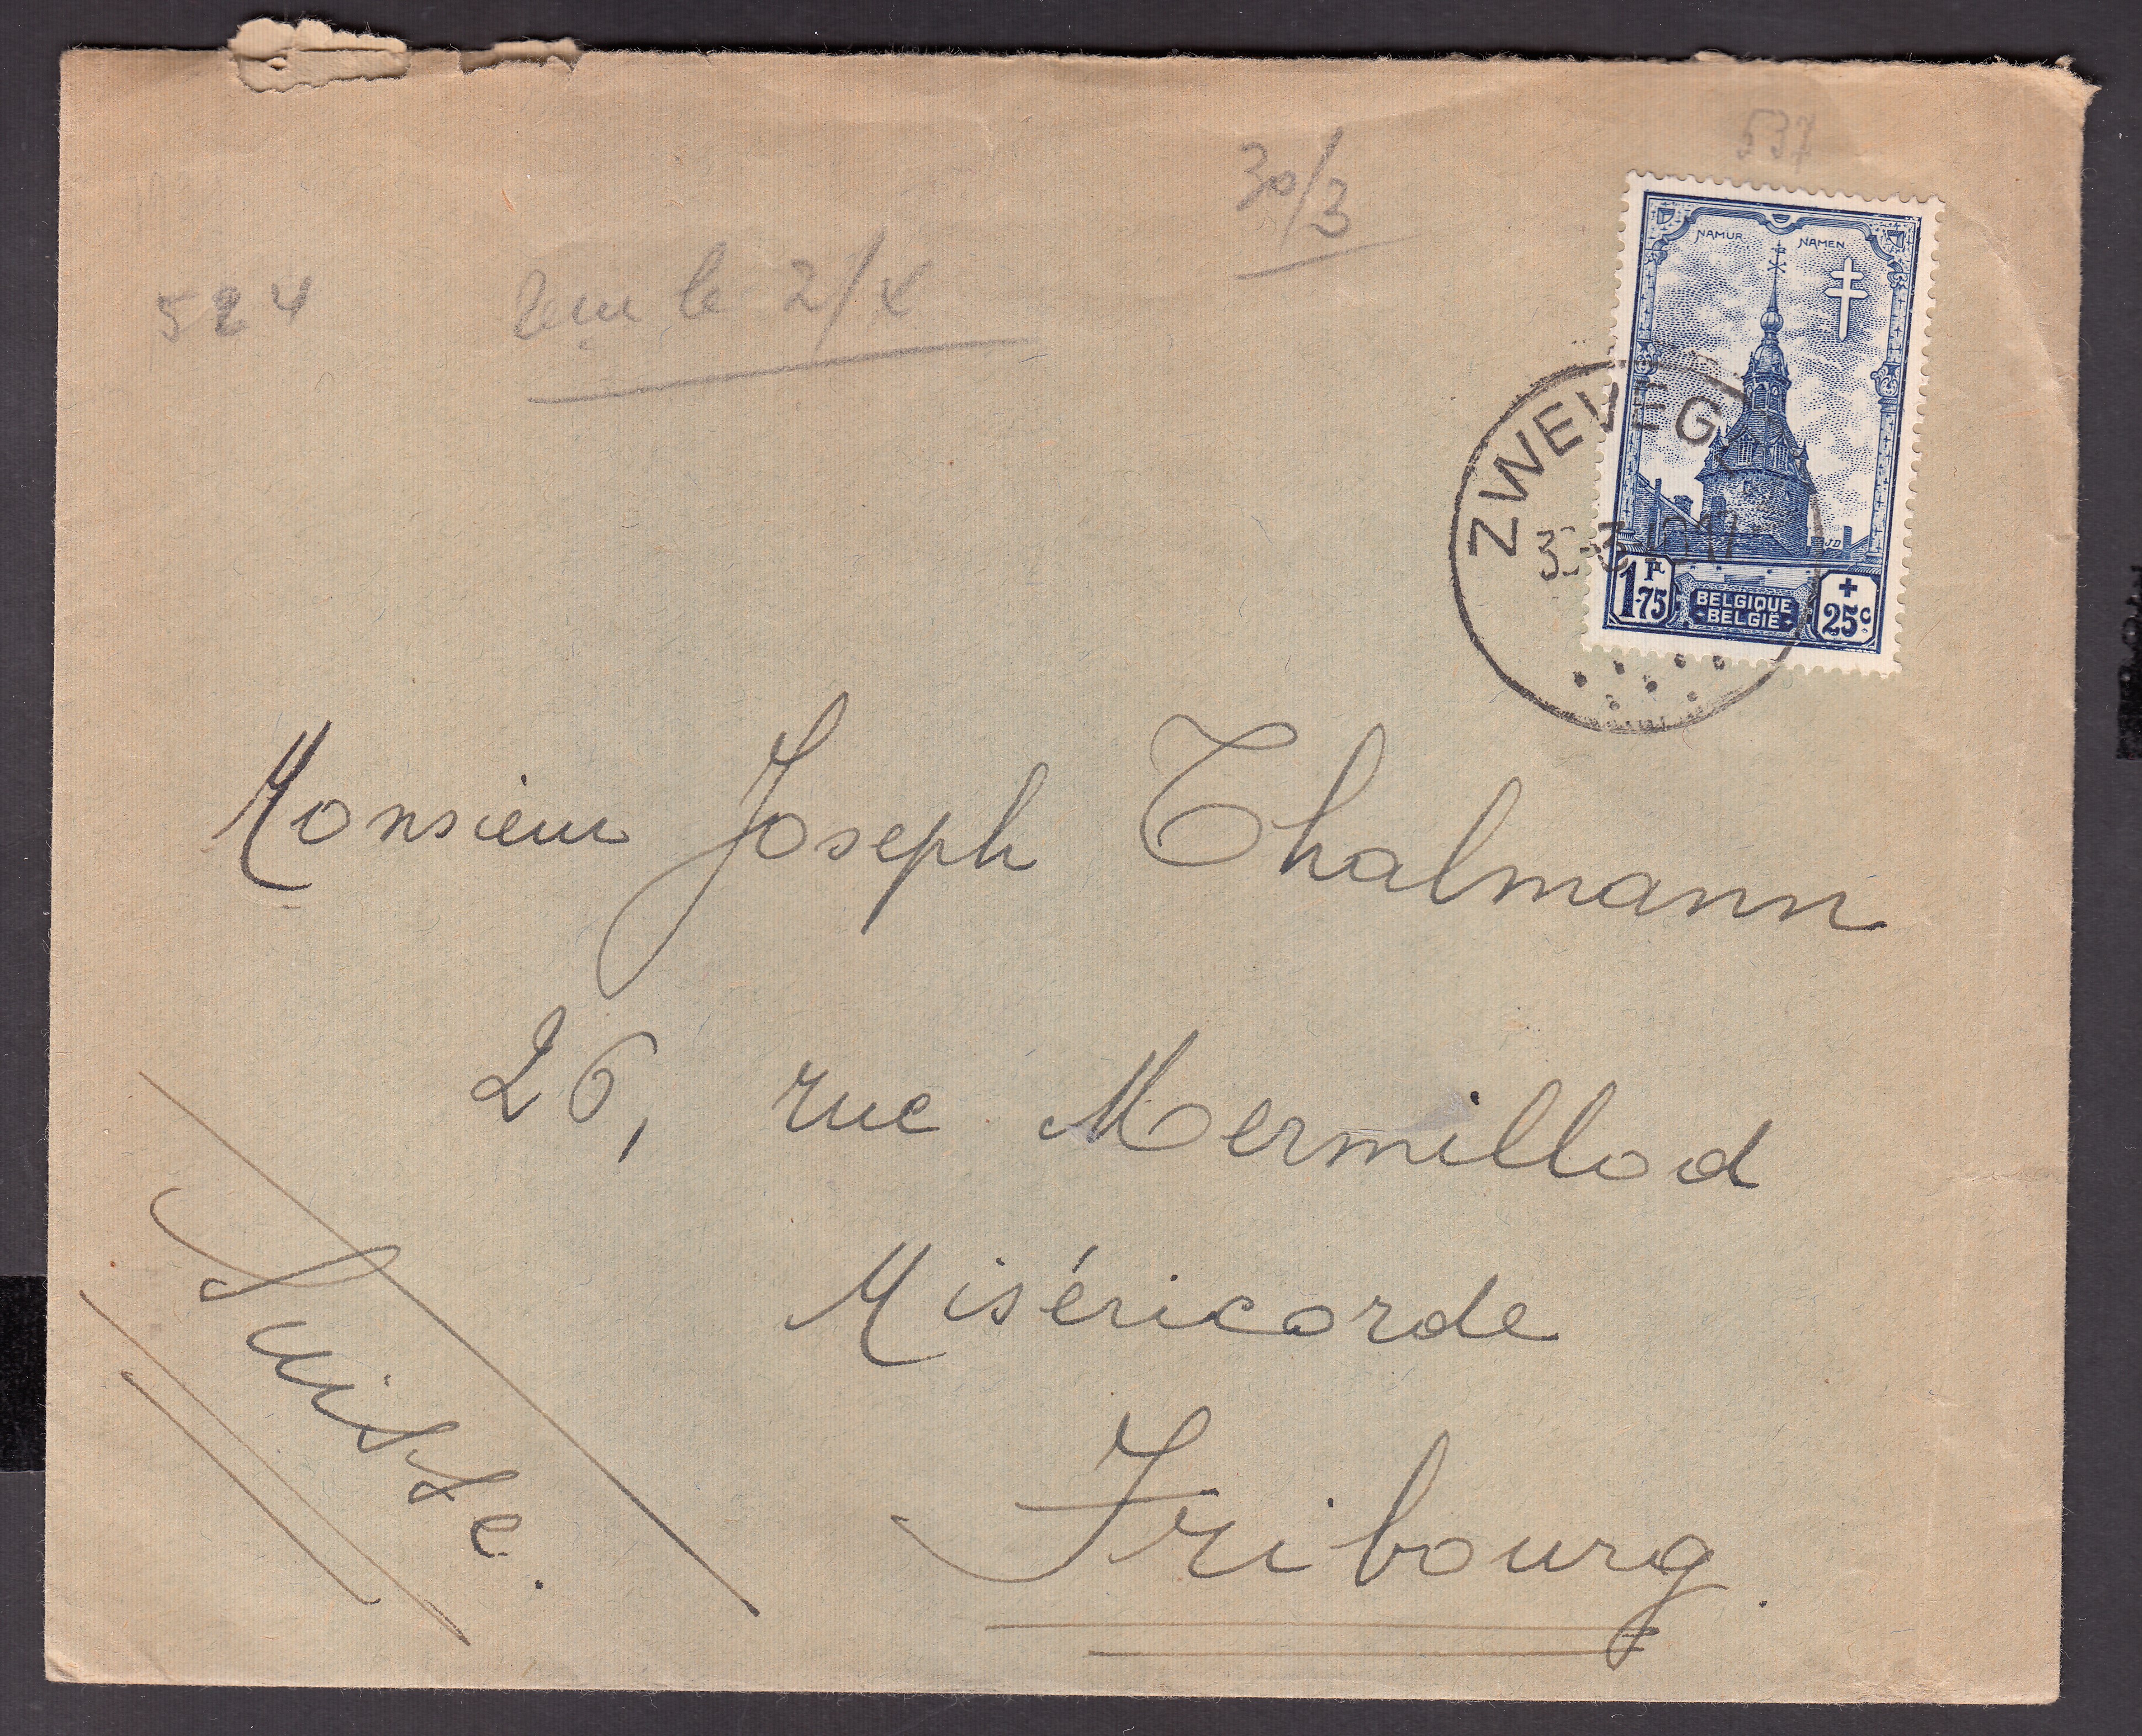 537
30/3
524
le 2/X
NAMUR NAMEN
ZWEVEG
1F75
BELGIQUE
BELGIË
+ 25c
JD
Monsieur Joseph Thalmann
26, rue Mermillod
Miséricorde
Fribourg.
Suisse.